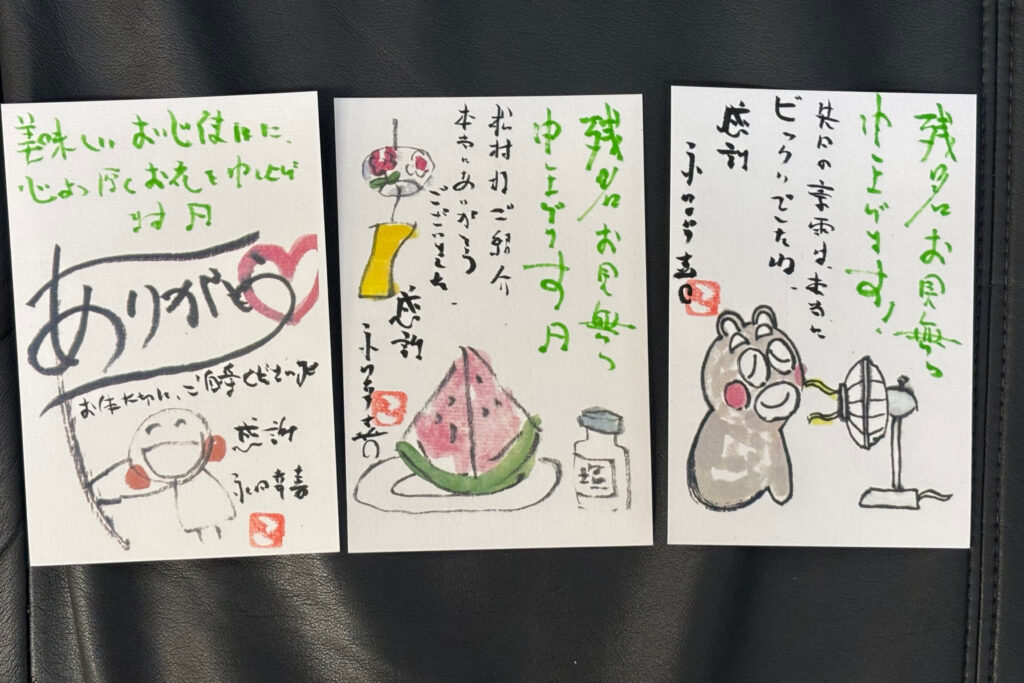 美味しいお心使いに、
お礼を申し上げ
ます
ありがとう
ご自愛くださいませ
感謝
残暑お見舞い
申し上げます
ご紹介
本当にありがとう
ございました
感謝
塩
残暑お見舞い
申し上げます!
先日の豪雨は、本当に
ビックリでしたね、
感謝